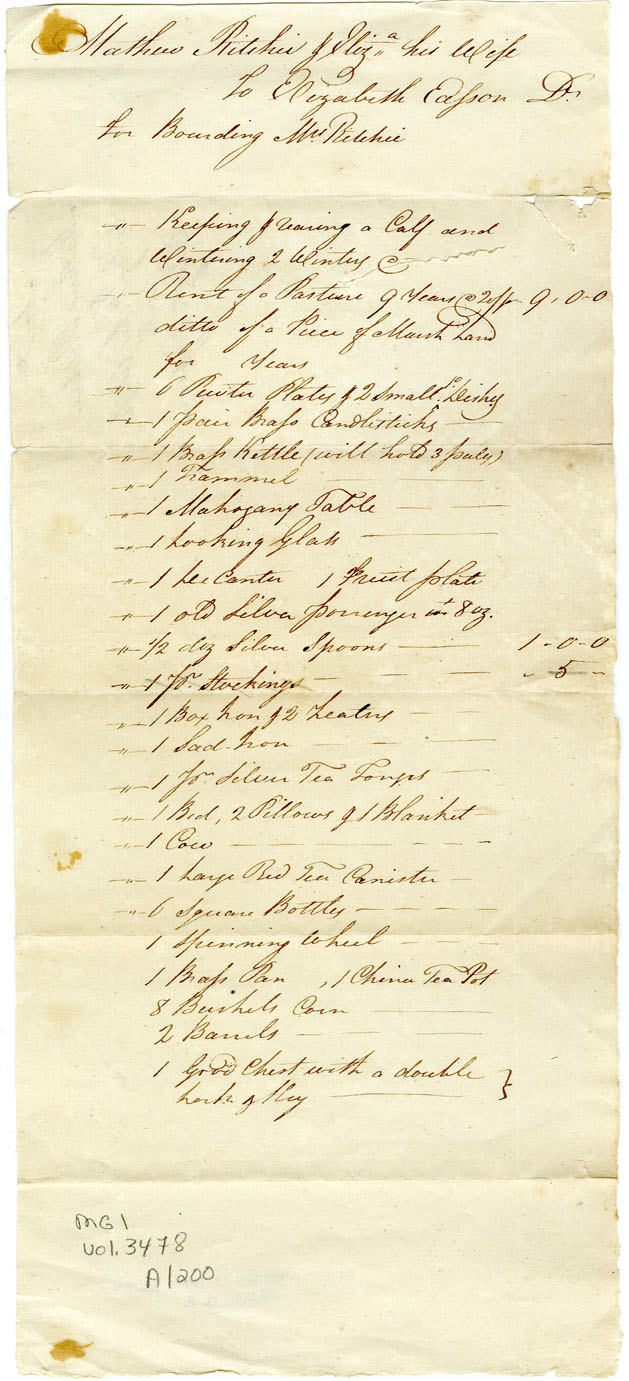 Mathew Ritchie & Eliz.a his Wife
To Elizabeth Easson Dr.
For Boarding Mrs Ritchie
-"- Keeping & rearing a Calf and
Wintering 2 Winters @
-"- Rent of a Pasture 9 Years @ 20/ pr 9, 0-0
ditto of a Piece of Marsh Land
for Years
-"- 6 Pewter Plates & 2 Small Do Dishes
-"- 1 pair Brass Candlesticks —
-"- 1 Brass Kettle (will hold 3 pales)
-"- 1 Trammel — —
-"- 1 Mahogany Table — —
-"- 1 Looking Glass —
-"- 1 Decanter 1 Fruit plate
-"- 1 old Silver porrenger wt 8 oz.
-"- 1/2 doz Silver Spoons — — 1-0-0
-"- 1 pr. Stockings — — — - 5 -
-"- 1 Box Iron & 2 heaters —
-"- 1 Sad-Iron — — —
-"- 1 pr. Silver Tea Tongs —
-"- 1 Bed, 2 Pillows & 1 Blanket -
-"- 1 Cow — — — —
-"- 1 Large Red Tea Canister —
-"- 6 Square Bottles — — —
1 Spinning Wheel — — —
1 Brass Pan , 1 China Tea Pot
8 Bushels Corn — —
2 Barrels — — —
1 Good Chest with a double }
Lock & Key —
MG1
vol. 3478
A/200